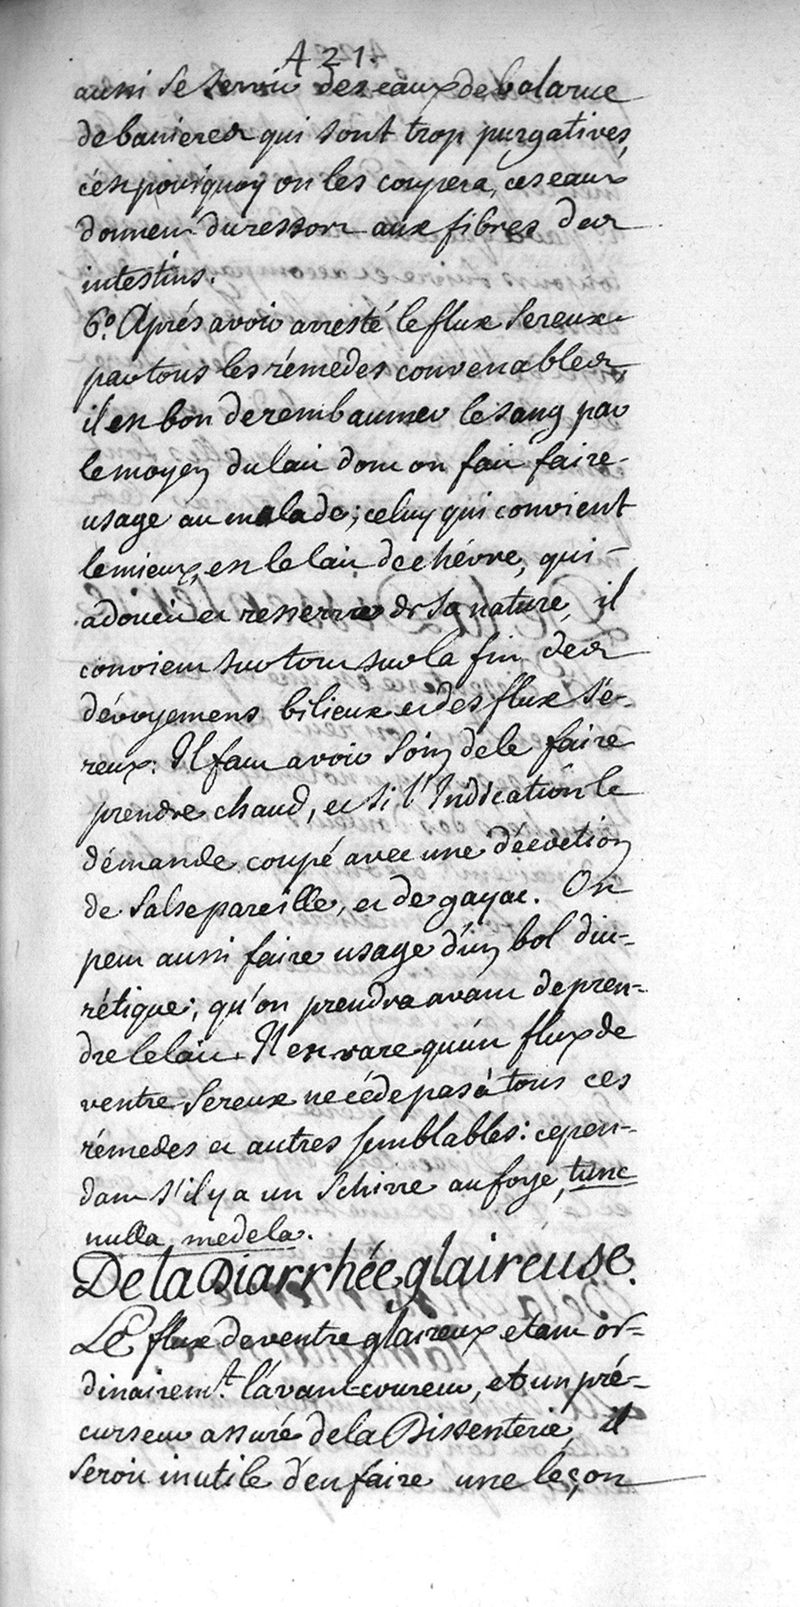 421.
aussi se servir des eaux de balaruc
de banieres qui sont trop purgatives,
c'est pourquoy on les coupera, ces eaux
donnent du ressort aux fibres des
intestins.
6.° Aprés avoir arresté le flux sereux
par tous les rémedes convenables,
il est bon de rembaumer le sang par
le moyen du lait dont on fait faire
usage au malade; celuy qui convient
le mieux, est le lait de chévre, qui
adoucit et resserre de sa nature, il
convient surtout sur la fin des
dévoyemens bilieux et des flux sé-
reux: Il faut avoir soin de le faire
prendre chaud, et si l'Indication le
démande coupé avec une décoction
de salsepareille, et de gayac. On
peut aussi faire usage d'un bol diu-
rétique; qu'on prendra avant de pren-
dre le lait. Il est rare qu'un flux de
ventre sereux ne céde pas à tous ces
rémedes et autres semblables: cepen-
dant s'il y a un schirre au foye, tunc
nulla medela.
De la Diarrhée glaireuse.
Le flux de ventre glaireux etant or-
dinairem.t l'avant-coureur, et un pré-
curseur assuré de la Dissenterie, il
seroit inutile d'en faire une leçon